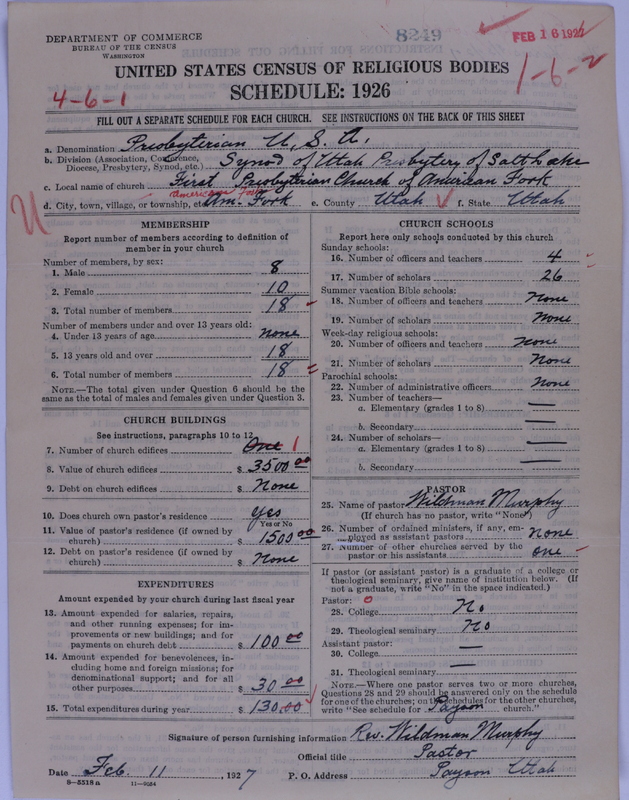 DEPARTMENT OF COMMERCE
BUREAU OF THE CENSUS
WASHINGTON
8249
FEB 16 192
1-6-2
4-6-1
UNITED STATES CENSUS OF RELIGIOUS BODIES
SCHEDULE: 1926
FILL OUT A SEPARATE SCHEDULE FOR EACH CHURCH. SEE INSTRUCTIONS ON THE BACK OF THIS SHEET
a. Denomination Presbyterian U, S. A.
b. Division (Association, Conference, Diocese, Presbytery, Synod, etc.) Synod of Utah Presbytery of Salt Lake
c. Local name of church First Presbyterian Church of American Fork
American Fork
d. City, town, village, or township, etc. Am. Fork e. County Utah f. State Utah
MEMBERSHIP
Report number of members according to definition of
member in your church
Number of members, by sex:
1. Male 8
2. Female 10
3. Total number of members 18
Number of members under and over 13 years old:
4. Under 13 years of age none
5. 13 years old and over 18
6. Total number of members 18
NOTE.—The total given under Question 6 should be
same as the total of males and females given under Question 3.
CHURCH BUILDINGS
See instructions, paragraphs 10 to 12
7. Number of church edifices One 1
8. Value of church edifices $ 3500 00
9. Debt on church edifices $ None
10. Does church own pastor's residence Yes
Yes or No
11. Value of pastor's residence (if owned by
church) $ 1500 00
12. Debt on pastor's residence (if owned by
church) $ None
EXPENDITURES
Amount expended by your church during last fiscal year
13. Amount expended for salaries, repairs,
and other running expenses; for im-
provements or new buildings; and for
payments on church debt $ 100 00
14. Amount expended for benevolences, in-
cluding home and foreign missions; for
denominational support; and for all
other purposes $ 30 00
15. Total expenditures during year $ 130.00
CHURCH SCHOOLS
Report here only schools conducted by this church
Sunday schools:
16. Number of officers and teachers 4
17. Number of scholars 26
Summer vacation Bible schools:
18. Number of officers and teachers None
19. Number of scholars None
Week-day religious schools:
20. Number of officers and teachers None
21. Number of scholars None
Parochial schools:
22. Number of administrative officers None
23. Number of teachers—
a. Elementary (grades 1 to 8) —
b. Secondary —
24. Number of scholars—
a. Elementary (grades 1 to 8) —
b. Secondary —
PASTOR
25. Name of pastor Wildman Murphy
(If church has no pastor, write "None")
26. Number of ordained ministers, if any, em-
ployed as assistant pastors none
27. Number of other churches served by the
pastor or his assistants one
If pastor (or assistant pastor) is a graduate of a college or
theological seminary, give name of institution below. (If
not a graduate, write "No" in the space indicated.)
Pastor: 0
28. College No
29. Theological seminary No
Assistant pastor:
30. College —
31. Theological seminary —
NOTE.—Where one pastor serves two or more churches,
Questions 28 and 29 should be answered only on the schedule
for one of the churches; on the schedules for the other churches,
write "See schedule for Payson church."
Signature of person furnishing information Rev. Wildman Murphy
Official title Pastor
Date Feb. 11, 1927 P. O. Address Payson Utah
8—5518 a 11—9054